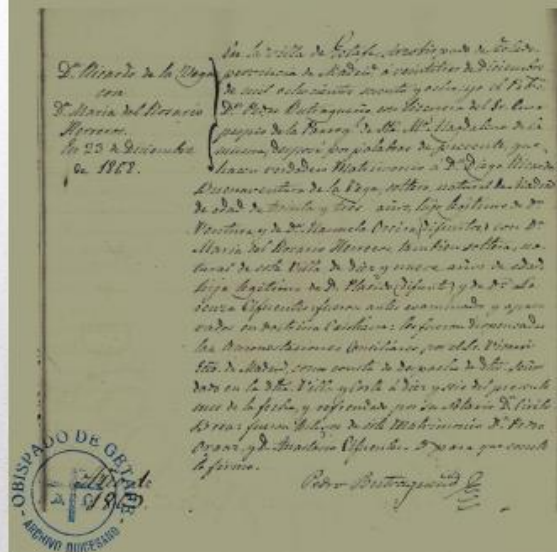 Dn. Ricardo de la Vega
con
Dª. Maria del Rosario
Herreros.
En 23 de Diciembre
de 1868.
En la villa de Getafe, Arzobispado de Toledo
provincia de Madrid á veintitres de Diciembre
de mil ochocientos sesenta y ocho: yo el
Dn. Pedro Butragueño con licencia del Sr. Cura
propio de la Parroq. de Sta. Mª. Magdalena de la
misma, desposé por palabras de presente, que
hacen verdadero Matrimonio á Dn. Diego Ricardo
Buenaventura de la Vega, soltero, natural de Madrid
de edad de treinta y tres años, hijo legitimo de Dn.
Ventura y de Dª. Manuela (difuntos) con Dª.
Maria del Rosario Herreros, tambien soltera, na-
tural de esta Villa de diez y nueve años de edad
hija legitima de D. (difunto) y de Dª.
Cifuentes: fueron antes examinados y apro-
vados en doctrina Cristiana: les fueron dispensadas
las Amonestaciones Conciliares, por el Sr. Vicario
de Madrid, como consta de despacho de dho. Señor
dado en la dha. Villa y Corte á diez y seis del presente
mes de la fecha, y refrendado por su Notario Dn. Cirilo
fueron testigos de este Matrimonio Dn. Pedro
y D. Cifuentes. Y para que conste
lo firmo.
Pedro Butragueño
OBISPADO DE GETAFE
ARCHIVO DIOCESANO